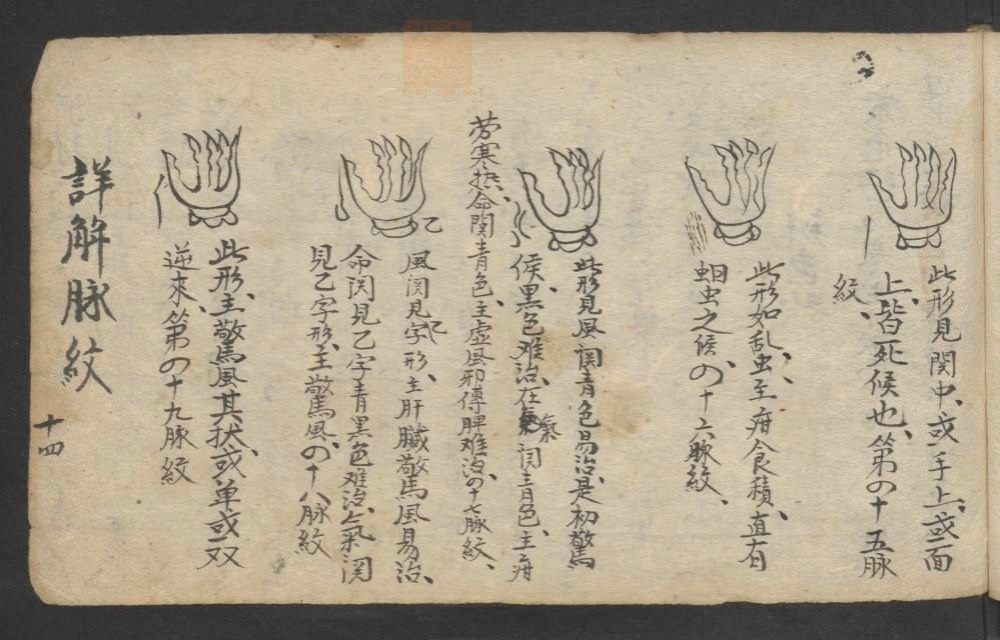 此形見関中、或手上、或面
上、皆死候也、第四十五脉
紋、
此形如乱虫、主疳食積、直有
蛔虫之候、四十六脉紋、
此形見風関青色易治、是初驚
候、黑色难治、在氣関青色、主疳
劳寒热、命関青色、主虚风邪傳脾难治、四十七脉紋、
風関見乙字形、主肝臟驚風易治、
命関見乙字青黑色难治、氣関
見乙字形、主驚風、四十八脉紋
此形、主驚風其状、或单或双
逆來、第四十九脉紋
詳解脉紋
十四